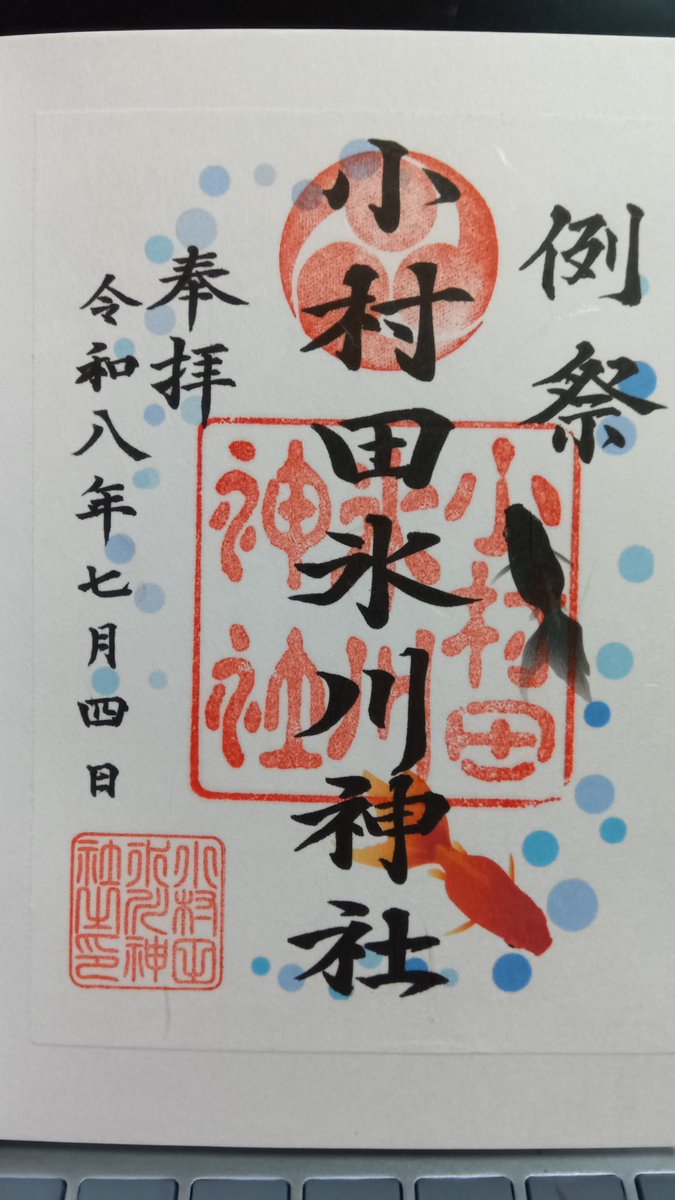 例祭
小村田氷川神社
奉拝
令和八年七月四日
小村田
氷川
神社
小村田
氷川神
社之印